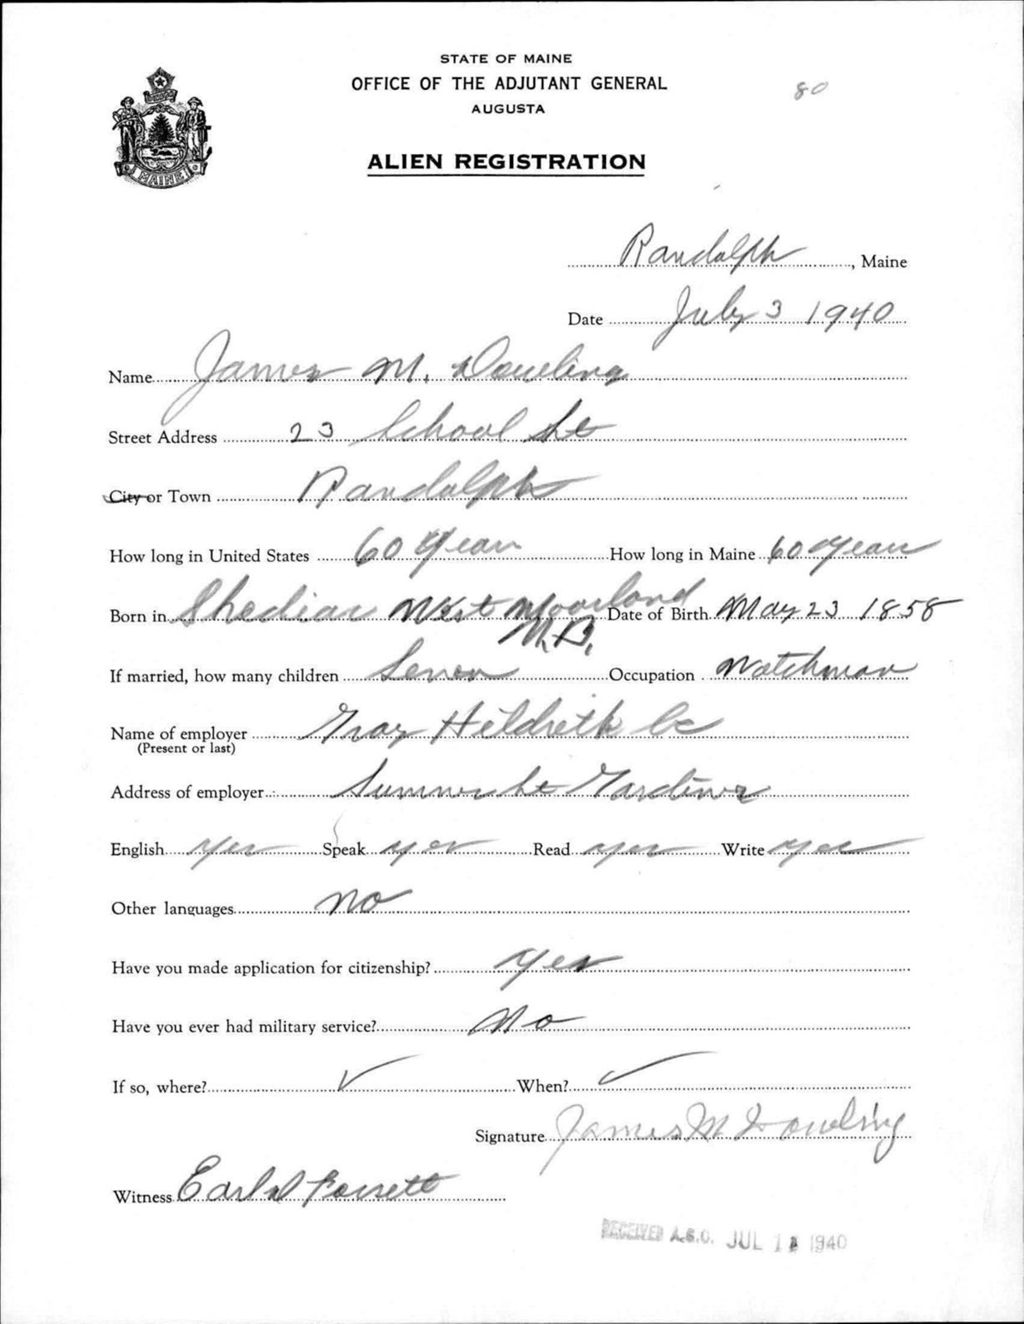 STATE OF MAINE
OFFICE OF THE ADJUTANT GENERAL
AUGUSTA
80
ALIEN REGISTRATION
MAINE
Randolph, Maine
Date July 3 1940
Name James M. Dowling
Street Address 23 School St
City or Town Randolph
How long in United States 60 Years How long in Maine 60 Years
Born in Shediac West Moorland N.B. Date of Birth May 23 1858
If married, how many children Seven Occupation Watchman
Name of employer Gray Hildreth Co
(Present or last)
Address of employer Summer St Gardiner
English yes Speak yes Read yes Write yes
Other languages No
Have you made application for citizenship? Yes
Have you ever had military service? No
If so, where? When?
Signature James M Dowling
Witness Earl
RECEIVED A.G.O. JUL 1940